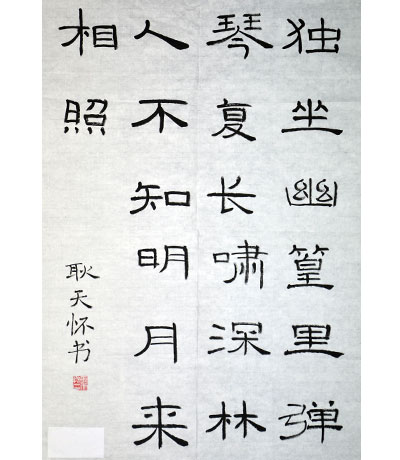 独坐幽篁里弹
琴复长啸深林
人不知明月来
相照
耿天怀书